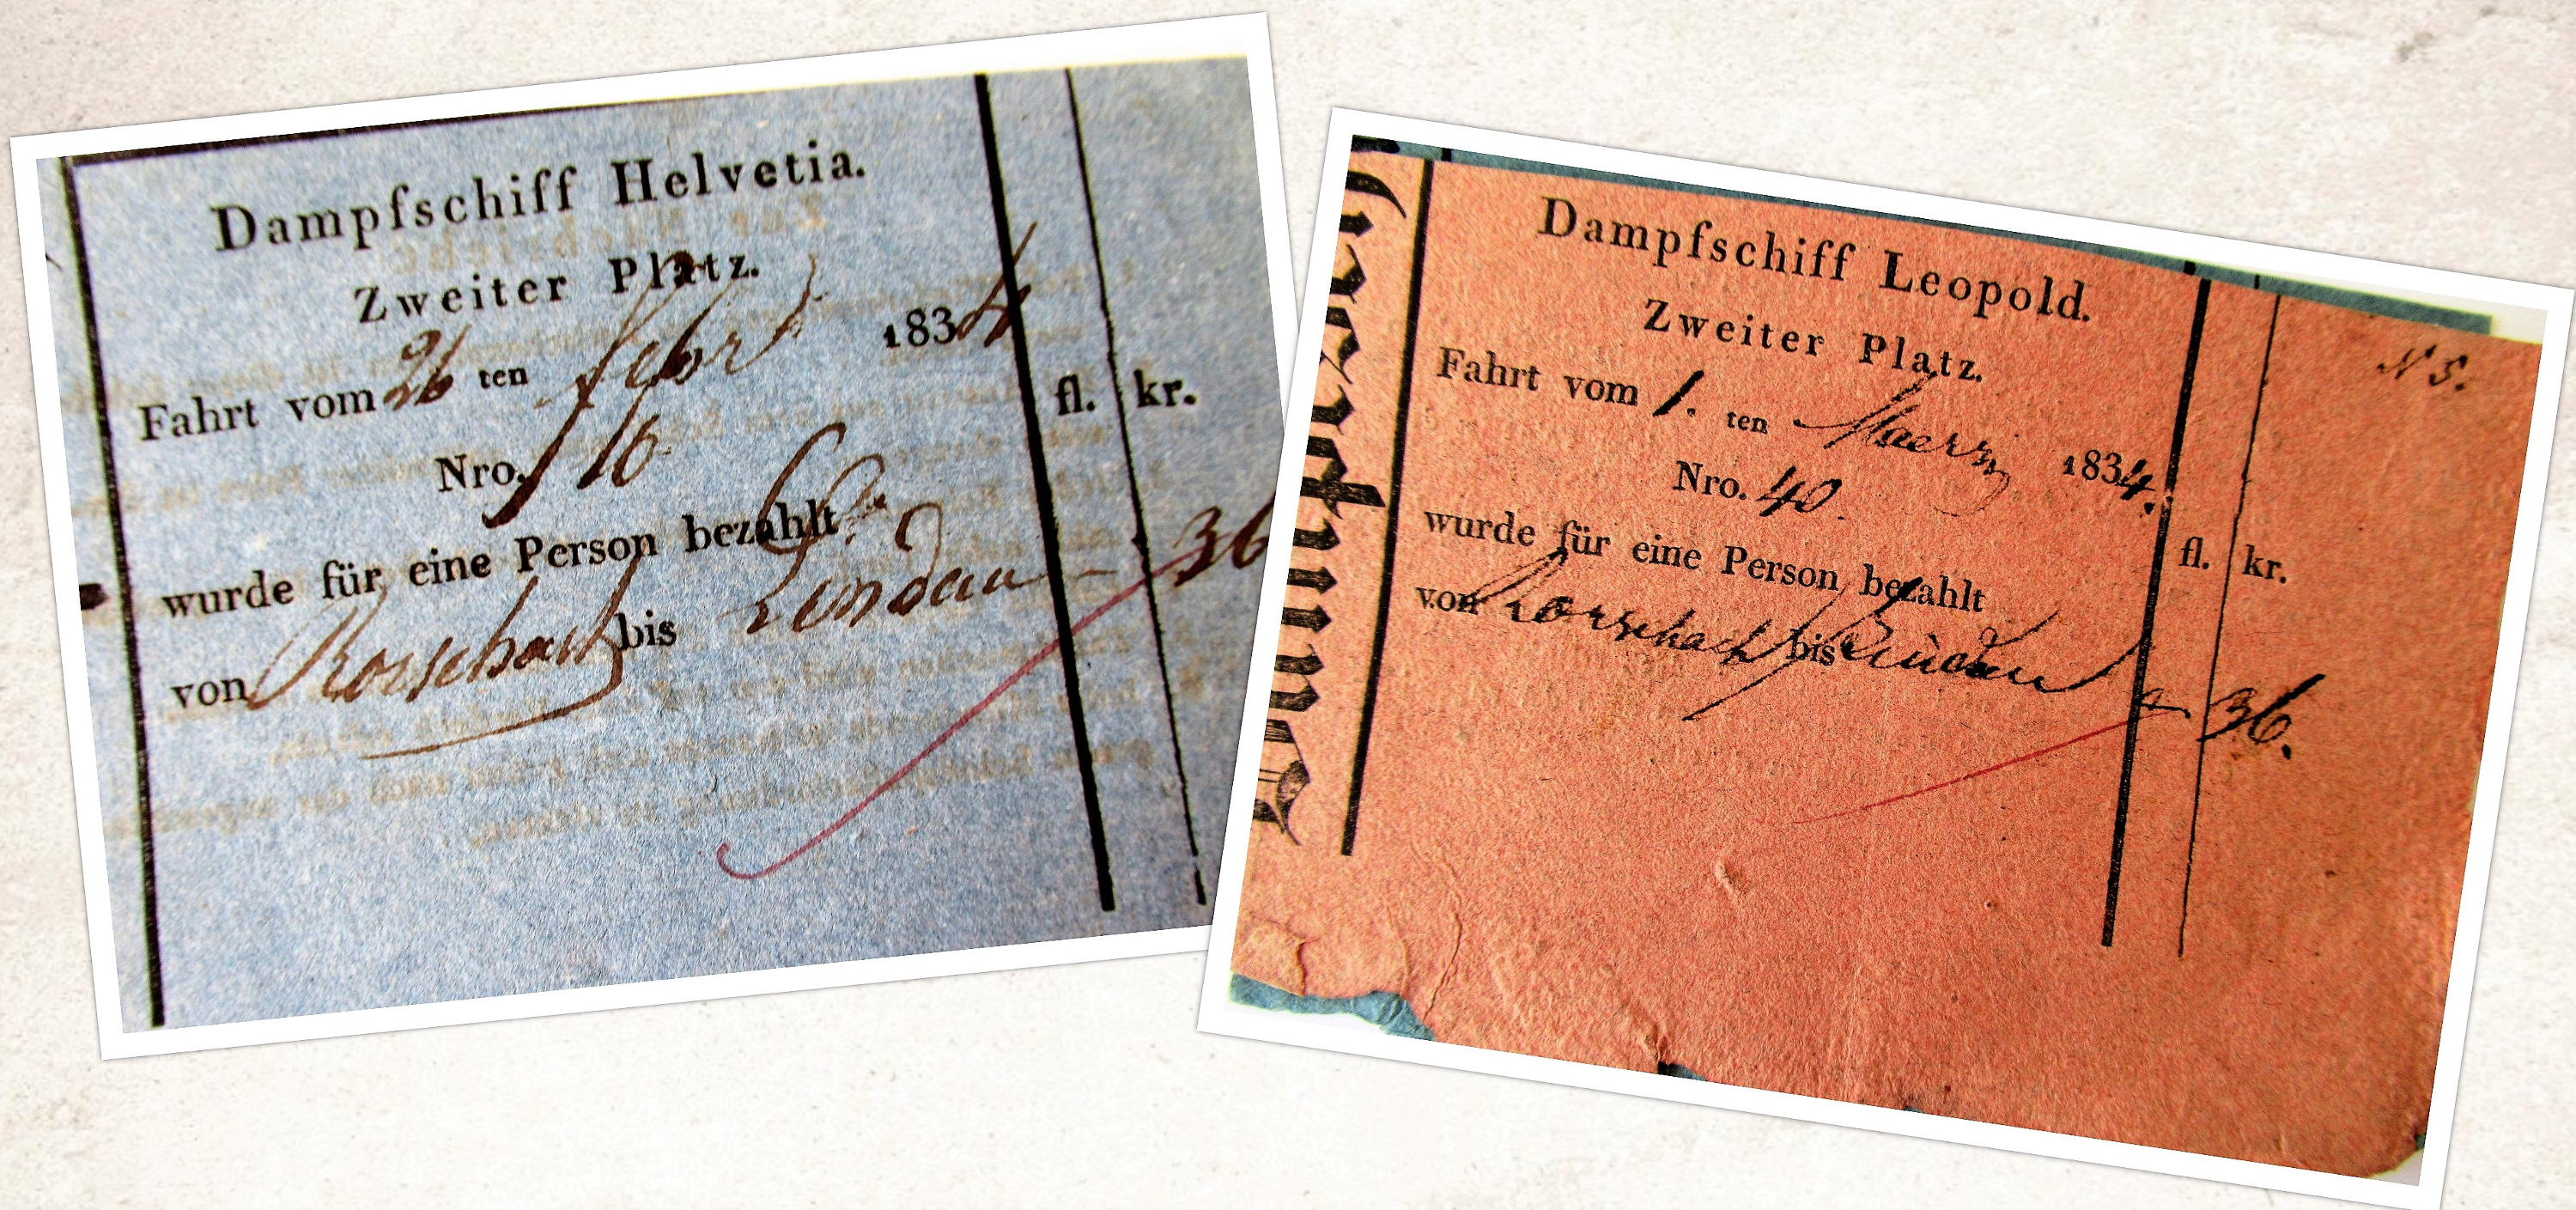 Dampfschiff Helvetia.
Zweiter Platz.
Fahrt vom 26 ten Febr 1834
Nro. 16
fl. kr.
wurde für eine Person bezahlt
von Rorschach bis Lindau – 36
Dampfschiff Leopold.
Zweiter Platz.
N 5.
Fahrt vom 1. ten Maerz 1834.
Nro. 40.
fl. kr.
wurde für eine Person bezahlt
von Rorschach bis Lindau – 36.